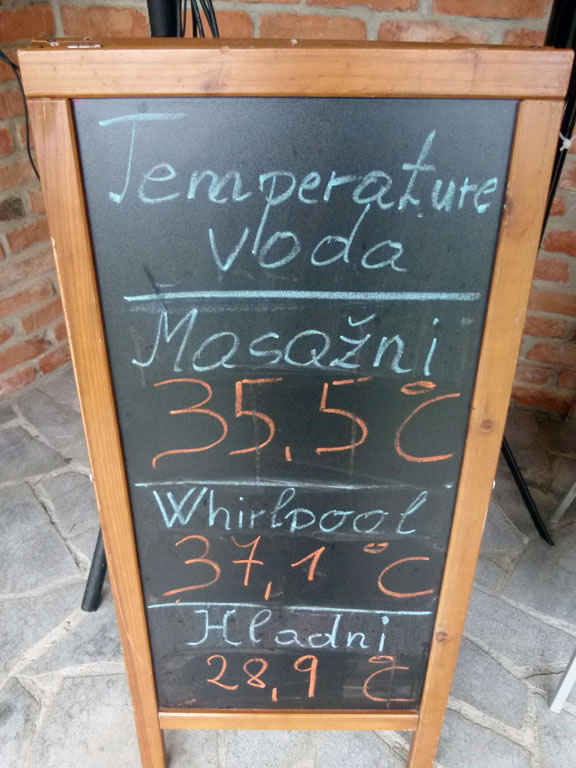 Temperature
voda
Masažni
35,5°C
Whirlpool
37,1°C
Hladni
28,9°C